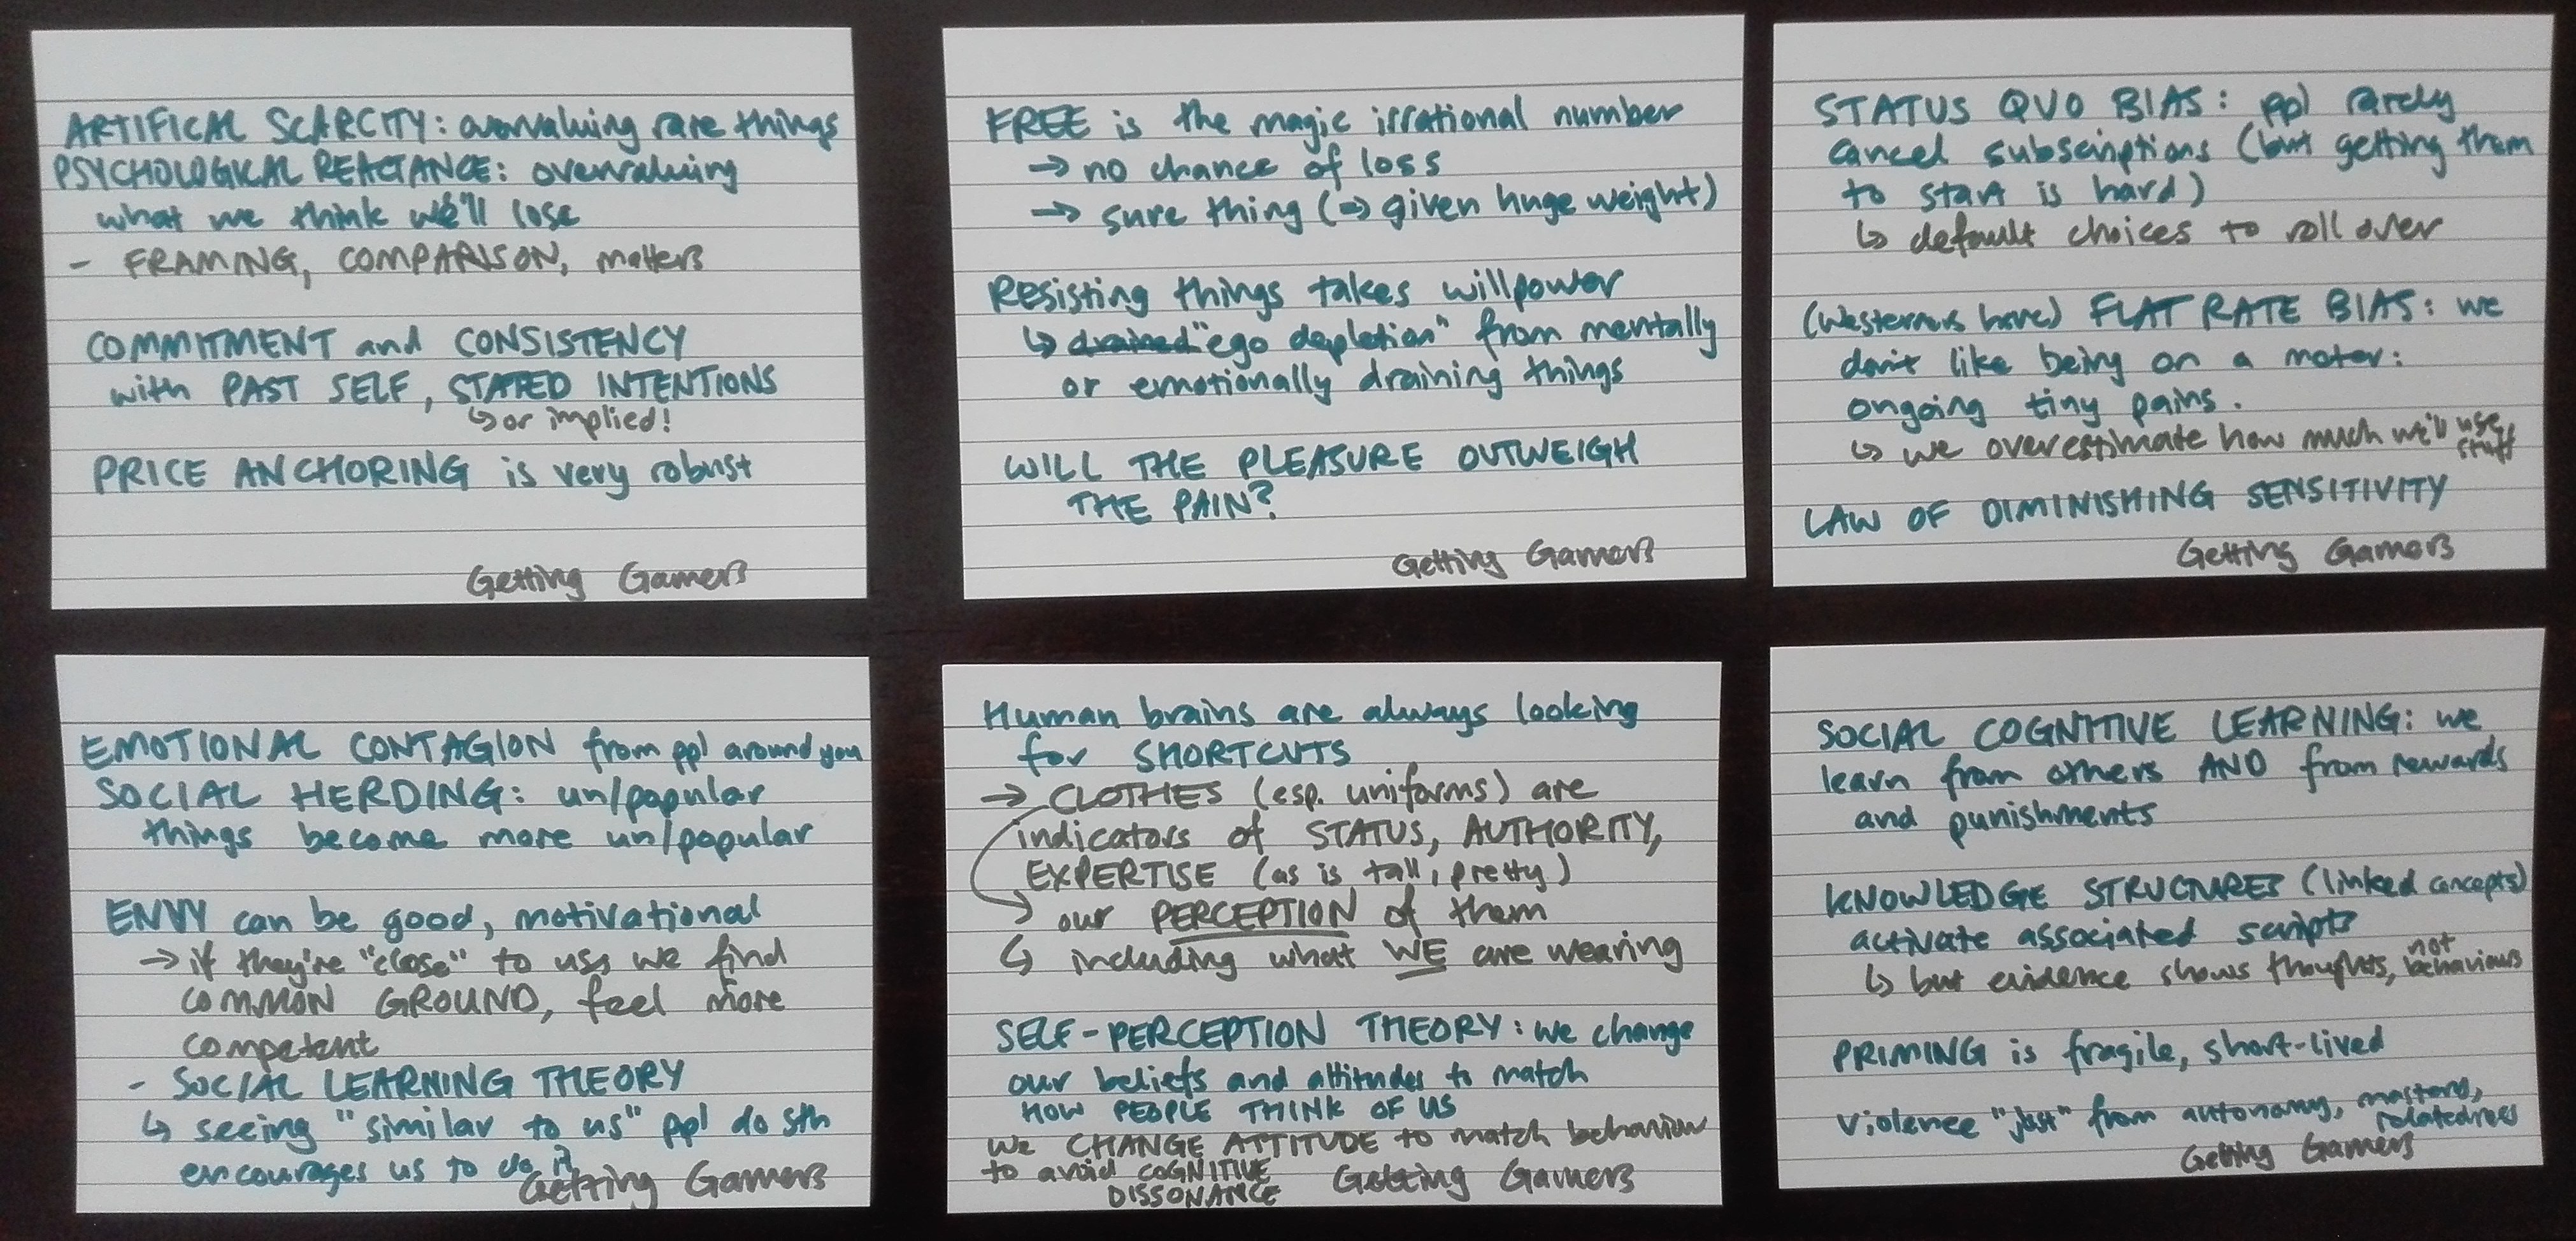 ARTIFICAL SCARCITY: overvaluing rare things
PSYCHOLOGICAL REACTANCE: overvaluing
what we think we'll lose
- FRAMING, COMPARISON, matters
COMMITMENT and CONSISTENCY
with PAST SELF, STATED INTENTIONS
↳ or implied!
PRICE ANCHORING is very robust
Getting Gamers
FREE is the magic irrational number
→ no chance of loss
→ sure thing (⇒ given huge weight)
Resisting things takes willpower
↳ drained "ego depletion" from mentally
or emotionally draining things
WILL THE PLEASURE OUTWEIGH
THE PAIN?
Getting Gamers
STATUS QUO BIAS: ppl rarely
cancel subscriptions (but getting them
to start is hard)
↳ default choices to roll over
(Westerners have) FLAT RATE BIAS: we
don't like being on a meter:
ongoing tiny pains.
↳ we overestimate how much we'll use
stuff
LAW OF DIMINISHING SENSITIVITY
Getting Gamers
EMOTIONAL CONTAGION from ppl around you
SOCIAL HERDING: un/popular
things become more un/popular
ENVY can be good, motivational
→ if they're "close" to us, we find
COMMON GROUND, feel more
competent
- SOCIAL LEARNING THEORY
↳ seeing "similar to us" ppl do sth
encourages us to do it
Getting Gamers
Human brains are always looking
for SHORTCUTS
→ CLOTHES (esp. uniforms) are
indicators of STATUS, AUTHORITY,
EXPERTISE (as is tall, pretty)
→ our PERCEPTION of them
↳ including what WE are wearing
SELF-PERCEPTION THEORY: we change
our beliefs and attitudes to match
HOW PEOPLE THINK OF US
WE CHANGE ATTITUDE to match behaviour
to avoid COGNITIVE
DISSONANCE
Getting Gamers
SOCIAL COGNITIVE LEARNING: we
learn from others AND from rewards
and punishments
KNOWLEDGE STRUCTURES (linked concepts)
activate associated scripts
↳ but evidence shows thoughts, not behaviours
PRIMING is fragile, short-lived
Violence "just" from autonomy, mastery,
relatedness
Getting Gamers